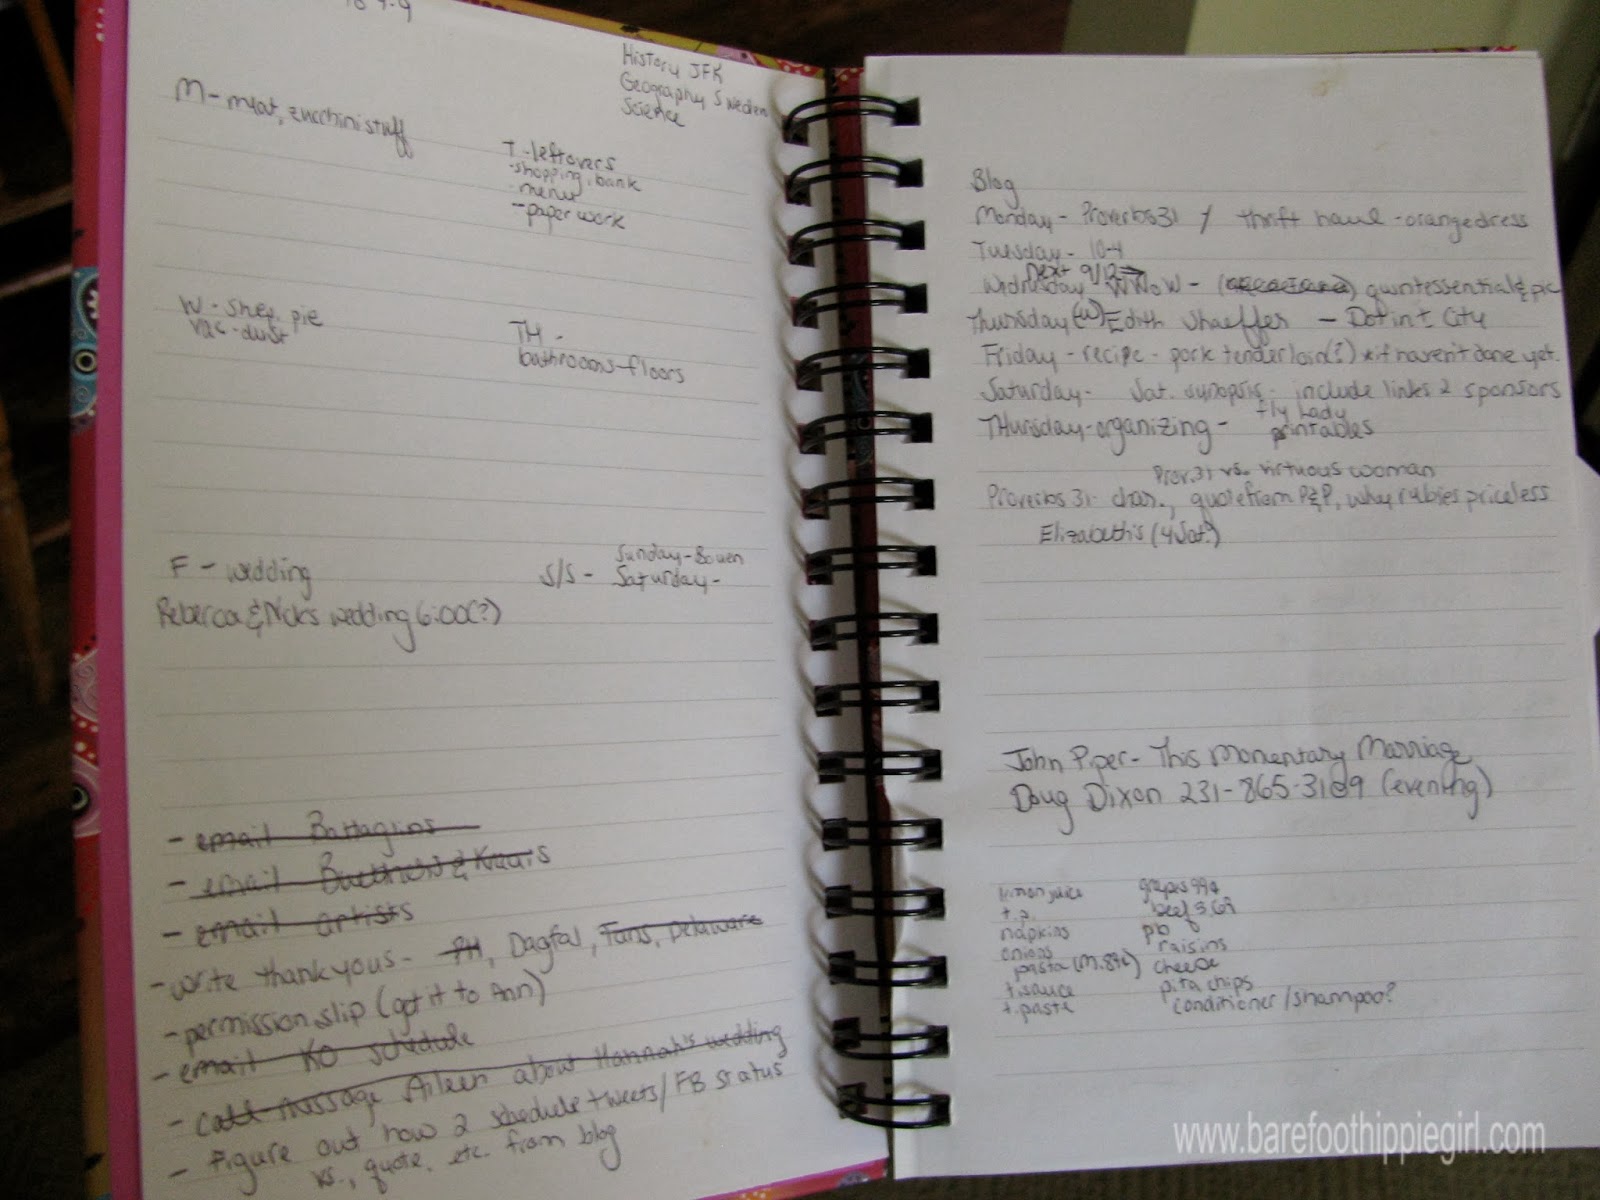 History JFK
Geography Sweden
Science
M - meat, zucchini stuff
T - leftovers
- shopping, bank
- menu
- paper work
W - shep. pie
vac - dust
TH -
bathrooms - floors
F - wedding
Rebecca & Nick's wedding 6:00(?)
Sunday - Bowen
S/S - Saturday -
- email
- email
- email artists
- write thank yous - PH, Dagfal, Fans, Delaware
- permission slip (get it to Ann)
- email KO schedule
- call message Aileen about Hannah's wedding
- figure out how 2 schedule tweets/FB status
vs., quote, etc. from blog
Blog
Monday - Proverbs 31 / thrift haul - orange dress
Tuesday - 10-4
next 9/12
Wednesday WWoW - quintessential & pic
Thursday (w) Edith Shaeffer - Dot int City
Friday - recipe - pork tenderloin(?) *if haven't done yet.
Saturday - Sat. synopsis - include links 2 sponsors
fly lady
THursday - organizing - printables
Prov. 31 vs. virtuous woman
Proverbs 31 char., quote from P&P, why rubies priceless
Elizabeth's (4 Sat?)
John Piper - This Momentary Marriage
Doug Dixon 231-865-3109 (evening)
lemon juice grapes 99¢
t.p. beef 3.69
napkins pb
onions raisins
pasta (m.89¢) cheese
t sauce pita chips
t. paste conditioner/shampoo?
www.barefoothippiegirl.com